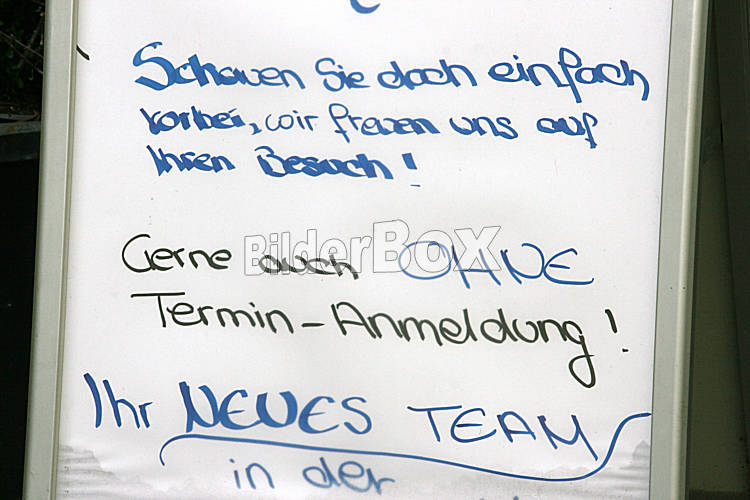 Schauen Sie doch einfach
vorbei, wir freuen uns auf
Ihren Besuch!
BilderBox
Gerne auch OHNE
Termin-Anmeldung!
Ihr NEUES TEAM
in der